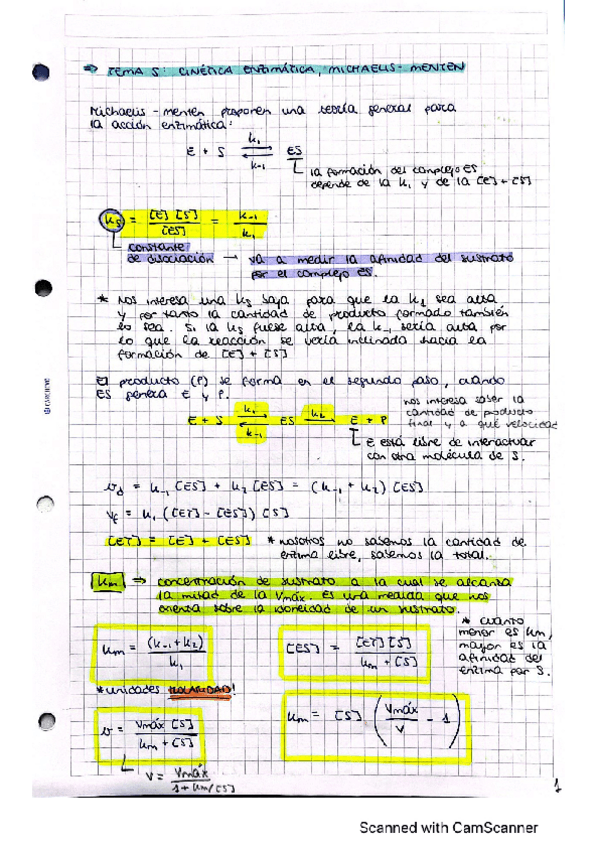 ⇒ TEMA 5: CINÉTICA ENZIMÁTICA, MICHAELIS-MENTEN
Michaelis-menten proponen una teoría general para
la acción enzimática:
E + S ⇌ ES
k₁
k-1
la formación del complejo ES
depende de la k₁ y de la [E] + [S]
ks = [E] [S] / [ES] = k-1 / k₁
constante
de disociación → va a medir la afinidad del sustrato
por el complejo ES.
* Nos interesa una ks baja para que la k₁ sea alta
y por tanto la cantidad de producto formado también
lo sea. Si la ks fuese alta, la k-1 sería alta por
lo que la reacción se vería inclinada hacia la
formación de [E] + [S]
El producto (P) se forma en el segundo paso, cuando
ES genera E y P.
nos interesa saber la
cantidad de producto
final y a qué velocidad
E + S ⇌ ES → E + P
k₁
k-1
k₂
E está libre de interactuar
con otra molécula de S.
vd = k-1 [ES] + k₂ [ES] = (k-1 + k₂) [ES]
vf = k₁ ([ET] - [ES]) [S]
[ET] = [E] + [ES] * nosotros no sabemos la cantidad de
enzima libre, sabemos la total.
km ⇒ concentración de sustrato a la cual se alcanza
la mitad de la Vmáx. Es una medida que nos
orienta sobre la idoneidad de un sustrato.
* cuanto
menor es km,
mayor es la
afinidad del
enzima por S.
km = (k-1 + k₂) / k₁
[ES] = [ET] [S] / km + [S]
* unidades MOLARIDAD!
v = Vmáx [S] / km + [S]
km = [S] (Vmáx / v - 1)
v = Vmáx / 1 + km/[S]
1
Scanned with CamScanner